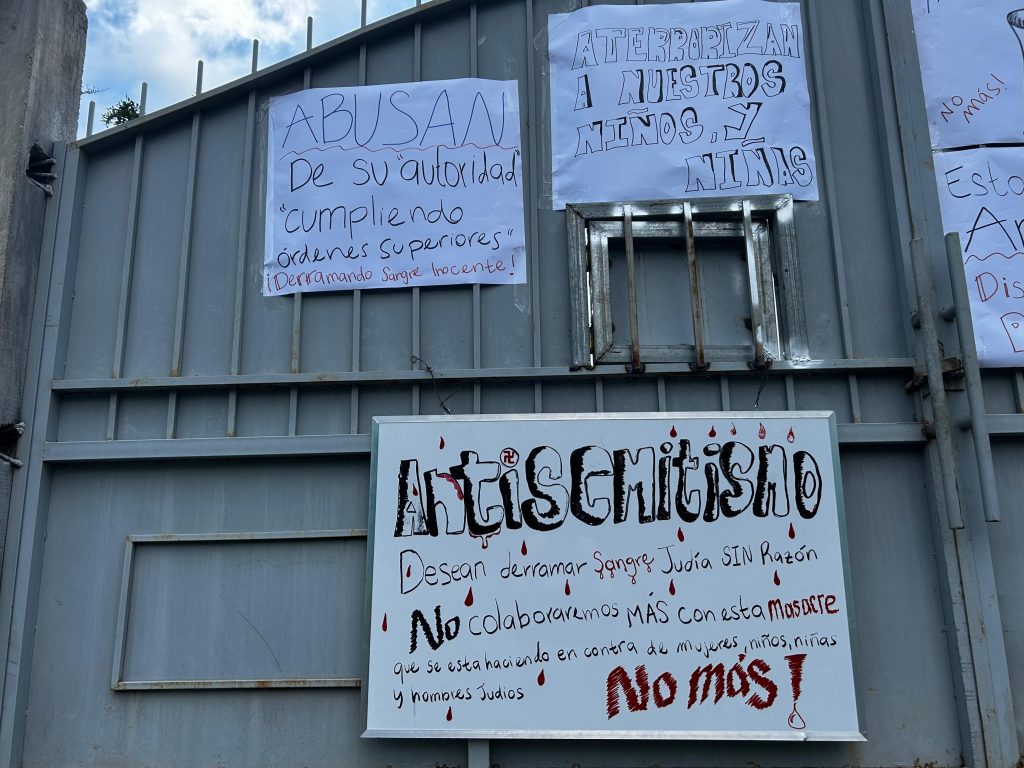 ABUSAN
De su "autoridad"
"cumpliendo
órdenes superiores"
¡Derramando Sangre Inocente!
ATERRORIZAN
A NUESTROS
NIÑOS, Y
NIÑAS
No
más!
Esto
An
Dis
Antisemitismo
Desean derramar Sangre Judía SIN Razón
No colaboraremos MÁS con esta Masacre
que se esta haciendo en contra de mujeres, niños, niñas
y hombres Judios
No más!